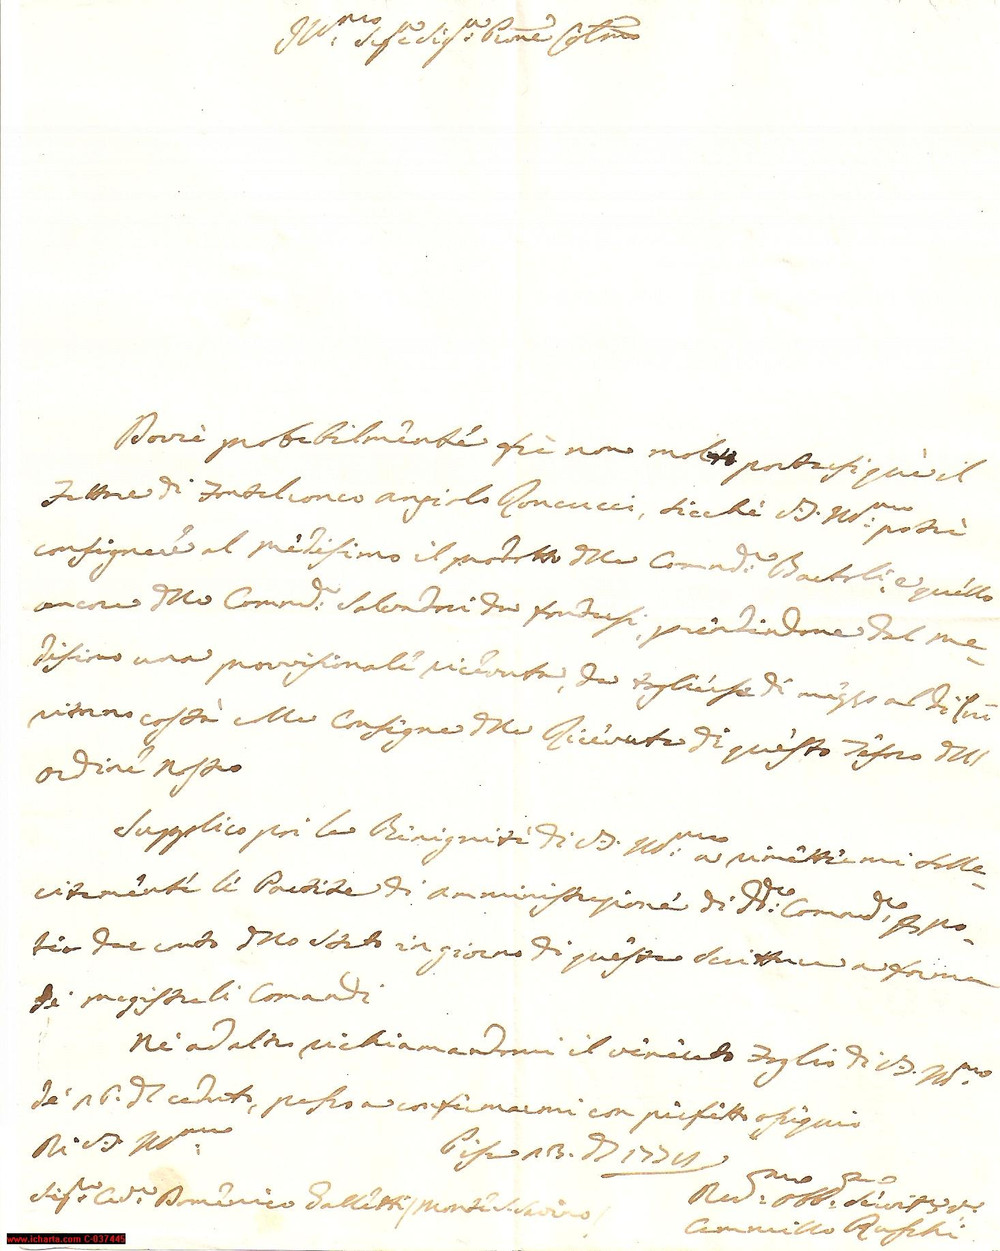 Ill.mo Sig.e Sig.e Prōne Col.mo
Dovrà probabilmēnte frà non molto portarsi quà il
Fattore di Angiolo Roncucci, sicché V.S. Ill.ma potrà
consignare al mēdesimo il prodotto della Comēd.a Bartoli, e quello
ancora della Comēd.a Salvadori da, prēndendone dal me-
disimo una provvisionale ricevuta, da togliersi di mezzo al di lui
ritorno costà alla Consigna della Ricevuta di questo Tesoro dell
ordine Nostro
Supplico poi la Benignità di V.S. Ill.ma a rimettermi solle-
citamente le Partite di amministrazione di dd.e Comēde, p. po-
ter dar conto dello Stato in giorno di questa Scrittura a forma
dei magistrali Comandi
Né ad altro richiamandomi il venerato Foglio di V.S. Ill.ma
de' 16. del caduto, passo a confermarmi con perfetto ossequio
Di V.S. Ill.ma
Pisa 13.
Sig.e Cav.e Domenico Galletti / Monte S. Savino /
Dev.mo Obb.mo Servit.e v.o
Cammillo
www.icharta.com C-037445